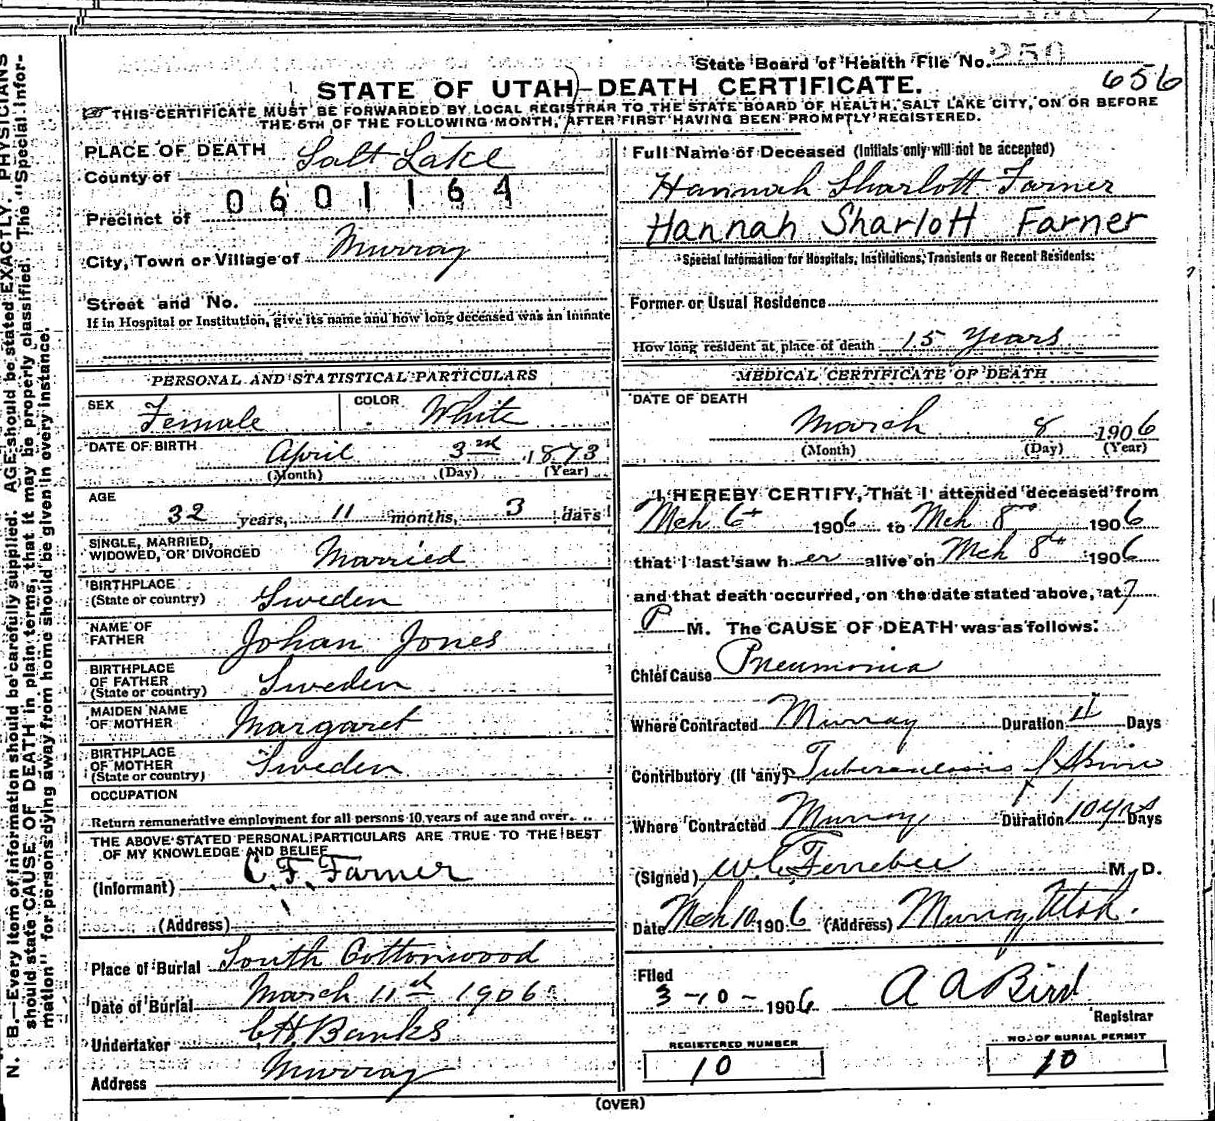 State Board of Health File No. 250
656
STATE OF UTAH—DEATH CERTIFICATE.
THIS CERTIFICATE MUST BE FORWARDED BY LOCAL REGISTRAR TO THE STATE BOARD OF HEALTH, SALT LAKE CITY, ON OR BEFORE
THE 5TH OF THE FOLLOWING MONTH, AFTER FIRST HAVING BEEN PROMPTLY REGISTERED.
N. B.—Every item of information should be carefully supplied. AGE should be stated EXACTLY. PHYSICIANS
should state CAUSE OF DEATH in plain terms, that it may be properly classified. The "Special Infor-
mation" for persons dying away from home should be given in every instance.
PLACE OF DEATH
County of Salt Lake
0601164
Precinct of
City, Town or Village of Murray
Street and No.
If in Hospital or Institution, give its name and how long deceased was an inmate
PERSONAL AND STATISTICAL PARTICULARS
SEX Female COLOR White
DATE OF BIRTH April 3rd 1873
(Month) (Day) (Year)
AGE
32 years, 11 months, 3 days
SINGLE, MARRIED,
WIDOWED, OR DIVORCED Married
BIRTHPLACE
(State or country) Sweden
NAME OF
FATHER Johan Jones
BIRTHPLACE
OF FATHER
(State or country) Sweden
MAIDEN NAME
OF MOTHER Margaret
BIRTHPLACE
OF MOTHER
(State or country) Sweden
OCCUPATION
Return remunerative employment for all persons 10 years of age and over.
THE ABOVE STATED PERSONAL PARTICULARS ARE TRUE TO THE BEST
OF MY KNOWLEDGE AND BELIEF
(Informant) C. F. Farner
(Address)
Place of Burial South Cottonwood
Date of Burial March 11th 1906
Undertaker C H Banks
Address Murray
Full Name of Deceased (Initials only will not be accepted)
Hannah Sharlott Farner
Hannah Sharlott Farner
Special Information for Hospitals, Institutions, Transients or Recent Residents:
Former or Usual Residence
How long resident at place of death 15 Years
MEDICAL CERTIFICATE OF DEATH
DATE OF DEATH
March 8 1906
(Month) (Day) (Year)
I HEREBY CERTIFY, That I attended deceased from
Mch 6th 1906 to Mch 8th 1906
that I last saw her alive on Mch 8th 1906
and that death occurred, on the date stated above, at 7
P M. The CAUSE OF DEATH was as follows:
Chief Cause Pneumonia
Where Contracted Murray Duration 11 Days
Contributory (if any) Tuberculosis of Spine
Where Contracted Murray Duration 10 yrs Days
(Signed) W. C. Ferrebee M. D.
Date Mch 10 1906 (Address) Murray Utah.
Filed
3-10-1906 A A Bird
Registrar
REGISTERED NUMBER
10
NO. OF BURIAL PERMIT
10
(OVER)